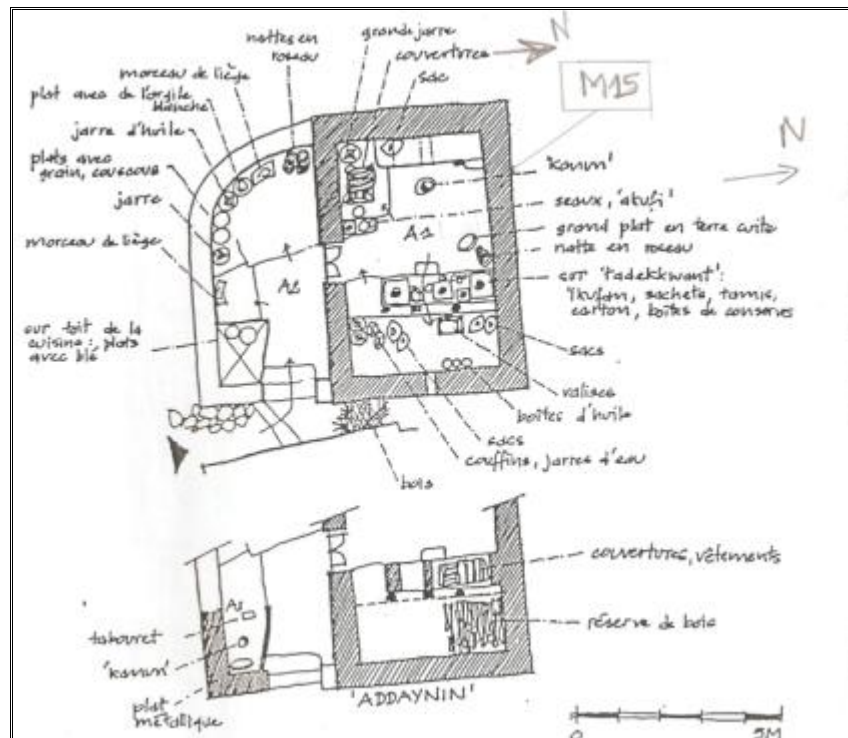 nattes en
roseau
grande jarre
couvertures
sac
N
M15
morceau de liège
plat avec de l'argile
blanche
jarre d'huile
plats avec
grain, couscous
jarre
morceau de liège
sur toit de la
cuisine: plats
avec blé
N
'kanun'
seaux, 'akufi'
grand plat en terre cuite
natte en roseau
sur 'tadekkwant':
ikufan, sachets, tamis,
carton, boîtes de conserves
sacs
valises
boîtes d'huile
sacs
couffins, jarres d'eau
bois
couvertures, vêtements
réserve de bois
tabouret
'kanun'
plat
métallique
'ADDAYNIN'
0
5M